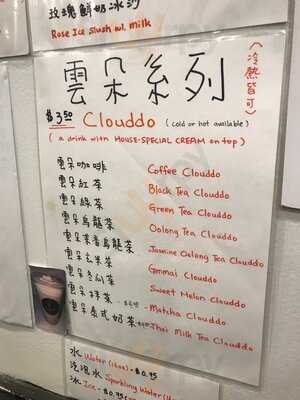 玫瑰鮮奶冰沙
Rose Ice Slush w/. Milk
雲朵系列
(冷熱皆可)
$3.50 Clouddo (cold or hot available)
(a drink with HOUSE-SPECIAL CREAM on top)
雲朵咖啡 Coffee Clouddo
雲朵紅茶 Black Tea Clouddo
雲朵綠茶 Green Tea Clouddo
雲朵烏龍茶 Oolong Tea Clouddo
雲朵茉香烏龍茶 Jasmine Oolong Tea Clouddo
雲朵玄米茶 Genmai Clouddo
雲朵冬瓜茶 Sweet Melon Clouddo
雲朵抹茶 Matcha Clouddo
雲朵泰式奶茶 Thai Milk Tea Clouddo
水 Water (16oz) - $0.75
汽泡水 Sparkling Water
冰 Ice -